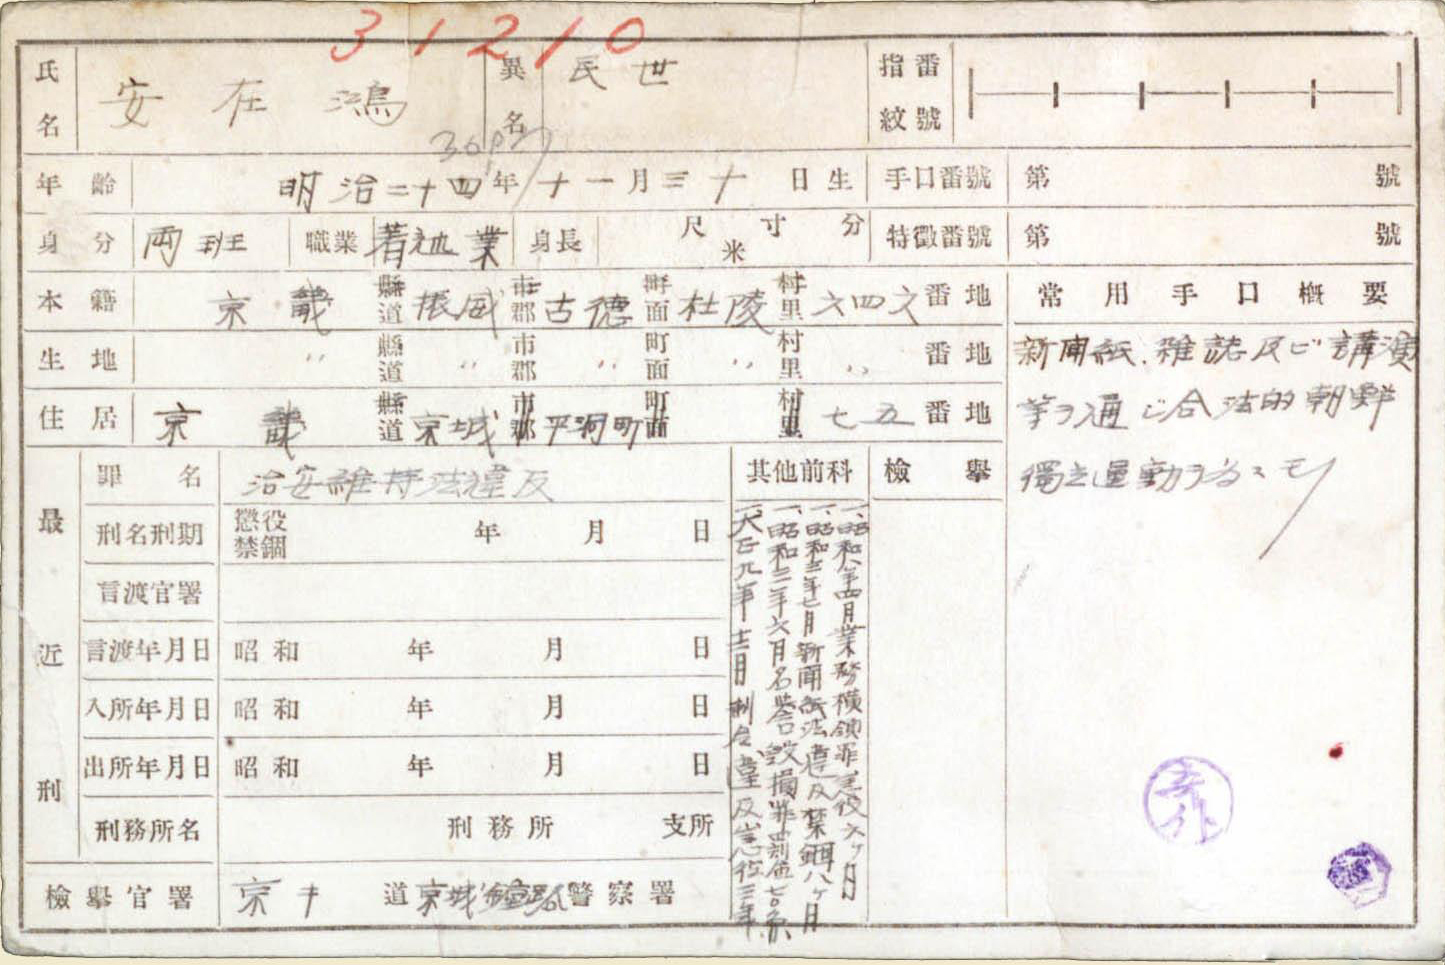 31210
氏名 安在鴻 異名 民世 指紋番號
年齡 明治二十四年十一月三十日生 手口番號 第 號
身分 両班 職業 著述業 身長 尺寸分 米 特徵番號 第 號
本籍 京畿 縣道 振威 市郡 古德 町面 杜陵 村里 六四六 番地
生地 〃 縣道 〃 市郡 〃 町面 〃 村里 〃 番地
住居 京畿 縣道 京城 市郡 平洞町 町面 村里 七五 番地
常用手口概要
新聞紙、雜誌及ビ講演
等ヲ通ジ合法的朝鮮
獨立運動ヲ為スモノ
最近刑
罪名 治安維持法違反
刑名刑期 懲役 禁錮 年 月 日
言渡官署
言渡年月日 昭和 年 月 日
入所年月日 昭和 年 月 日
出所年月日 昭和 年 月 日
刑務所名 刑務所 支所
檢擧官署 京キ 道 京城鐘路警察署
其他前科
一、昭和八年四月業務橫領罪懲役六ヶ月
一、昭和三年七月新聞紙法違反禁錮八ヶ月
一、昭和三年六月名誉毀損罪
一、大正九年十二月制令違反懲役三年
檢擧